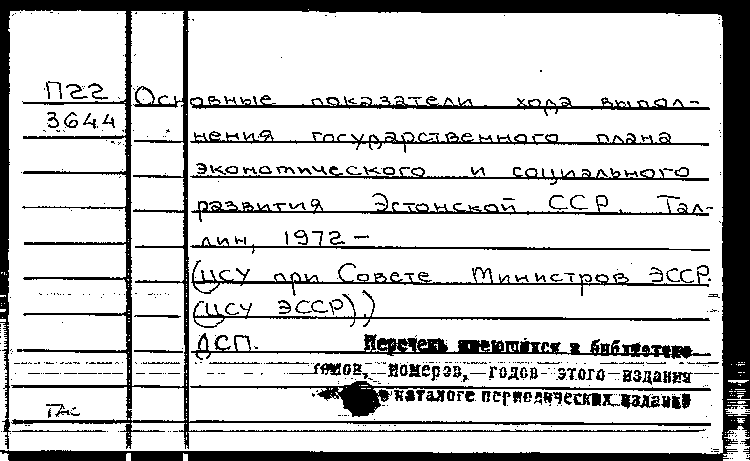 П22 Основные показатели хода выпол-
3644 нения государственного плана
экономического и социального
развития Эстонской ССР. Тал-
лин, 1972 –
(ЦСУ при Совете Министров ЭССР
(ЦСУ ЭССР))
ДСП. Перечень имеющихся в библиотеке
томов, номеров, годов этого издания
в каталоге периодических изданий